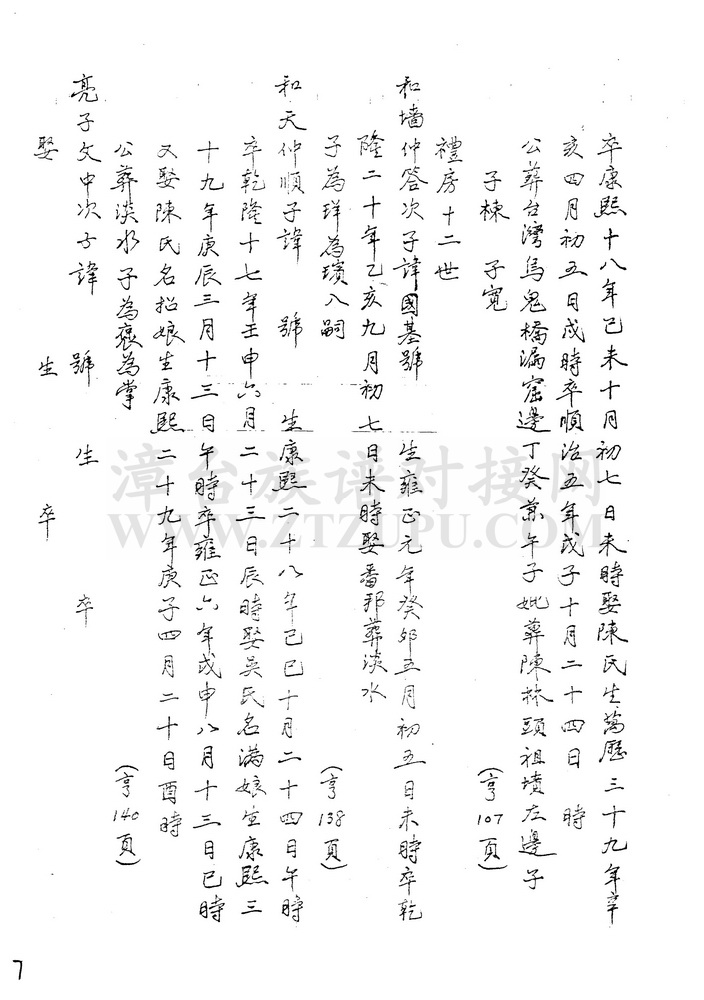 卒康熙十八年己未十月初七日未時娶陳氏生萬歷三十九年辛
亥四月初五日戌時卒順治五年戊子十月二十四日 時
公葬台灣烏鬼橋漏窟邊丁癸兼午子妣葬陳林頭祖墳左邊子
子棟 子寬 (亨107頁)
禮房十二世
和墻仲答次子諱國基號 生雍正元年癸卯五月初五日未時卒乾
隆二十年乙亥九月初七日未時娶番邦葬淡水
子為珜為璸入嗣 (亨138頁)
和天仲順子諱 號 生康熙二十八年己巳十月二十四日午時
卒乾隆十七年壬申六月二十三日辰時娶吳氏名滿娘生康熙三
十九年庚辰三月十三日午時卒雍正六年戊申八月十三日巳時
又娶陳氏名招娘生康熙二十九年庚子四月二十日酉時
公葬淡水子為袞為掌 (亨140頁)
亮子文申次子諱 號 生 卒
娶 生 卒
7
漳台族谱对接网
WWW.ZTZUPU.COM